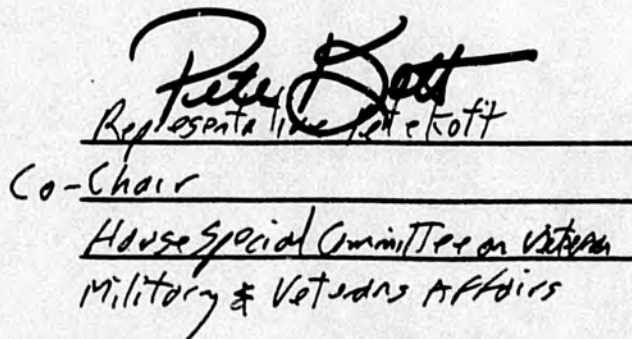 Pete Kott
Representative Pete Kott
Co-Chair
House Special Committee on Veteran
Military & Veterans Affairs